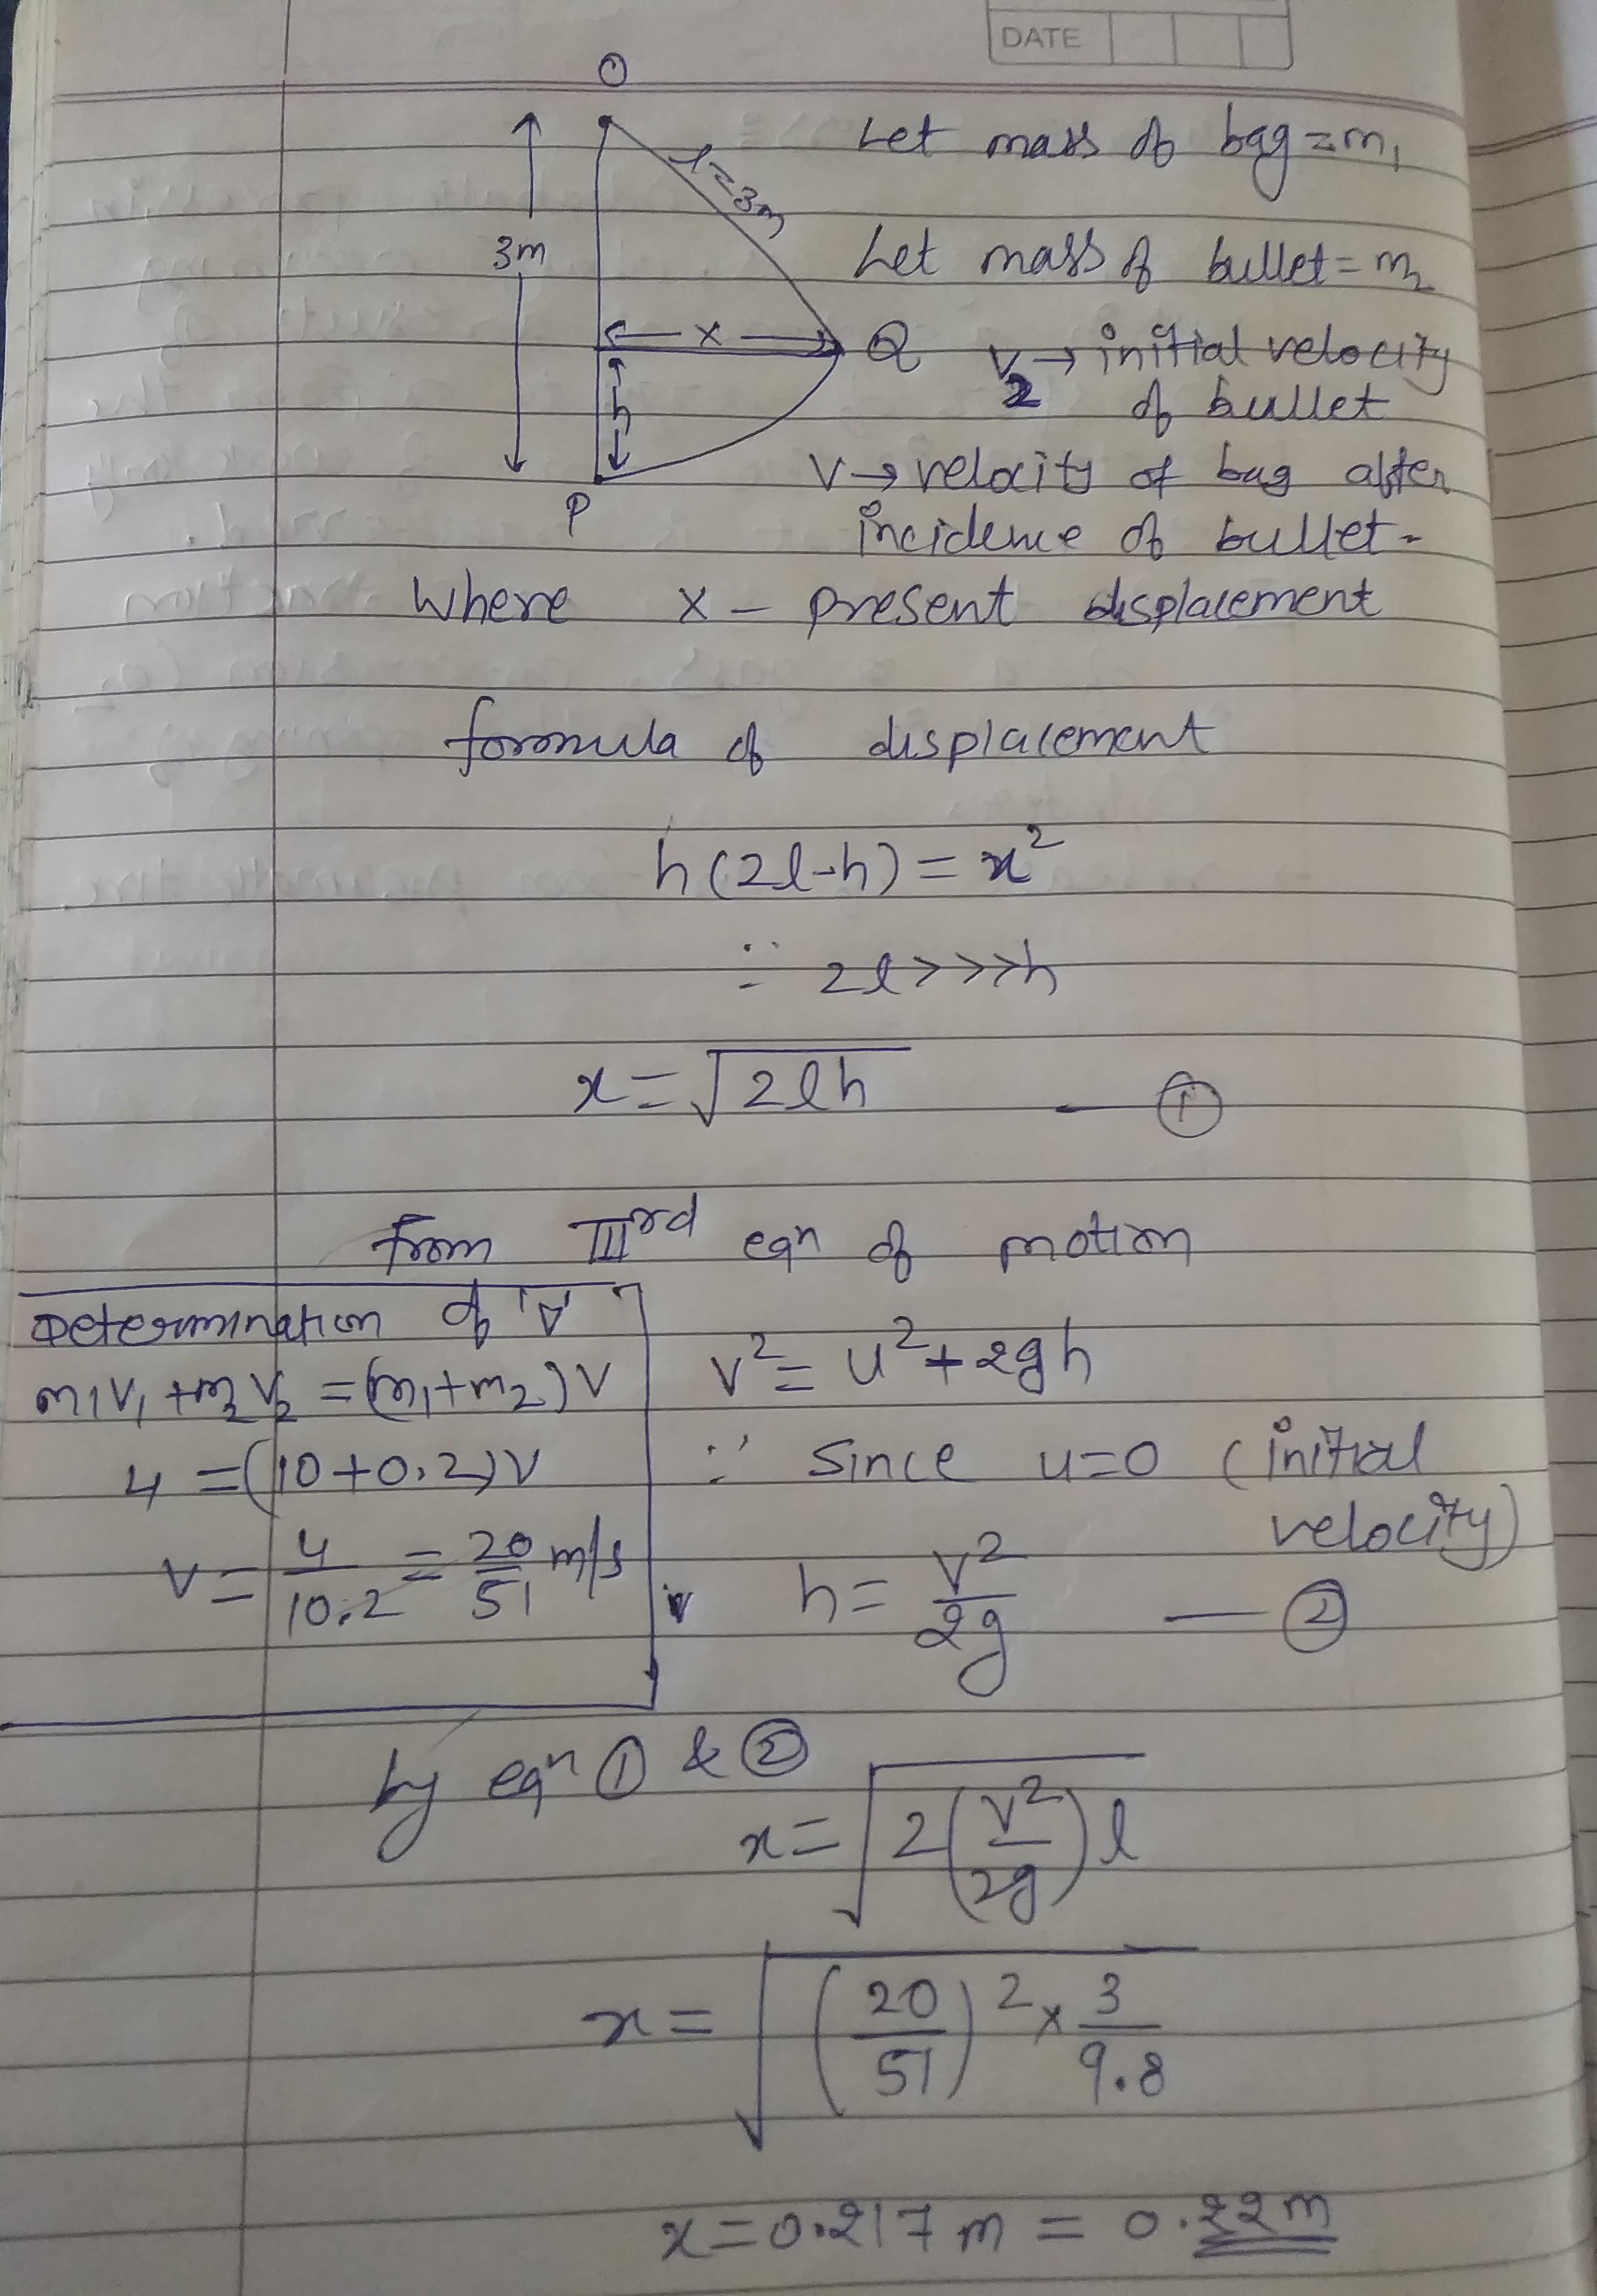 DATE
O
Let mass of bag = m₁
l=3m
3m
Let mass of bullet = m₂
x
Q
V₂ → initial velocity
of bullet
h
V → velocity of bag after
P
incidence of bullet -
Where x - present displacement
formula of displacement
h(2l-h) = x²
∵ 2l>>>h
x = √2lh — ①
From IIIrd eqn of motion
Determination of 'V'
m1V₁ + m₂V₂ = (m₁+m₂)V
4 = (10+0.2)V
V = 4/10.2 = 20/51 m/s
V² = u² + 2gh
∵ Since u=0 (initial
velocity)
h = V²/2g — ②
by eqn ① & ②
x = √2(V²/2g)l
x = √(20/51)² × 3/9.8
x = 0.217 m = 0.22m